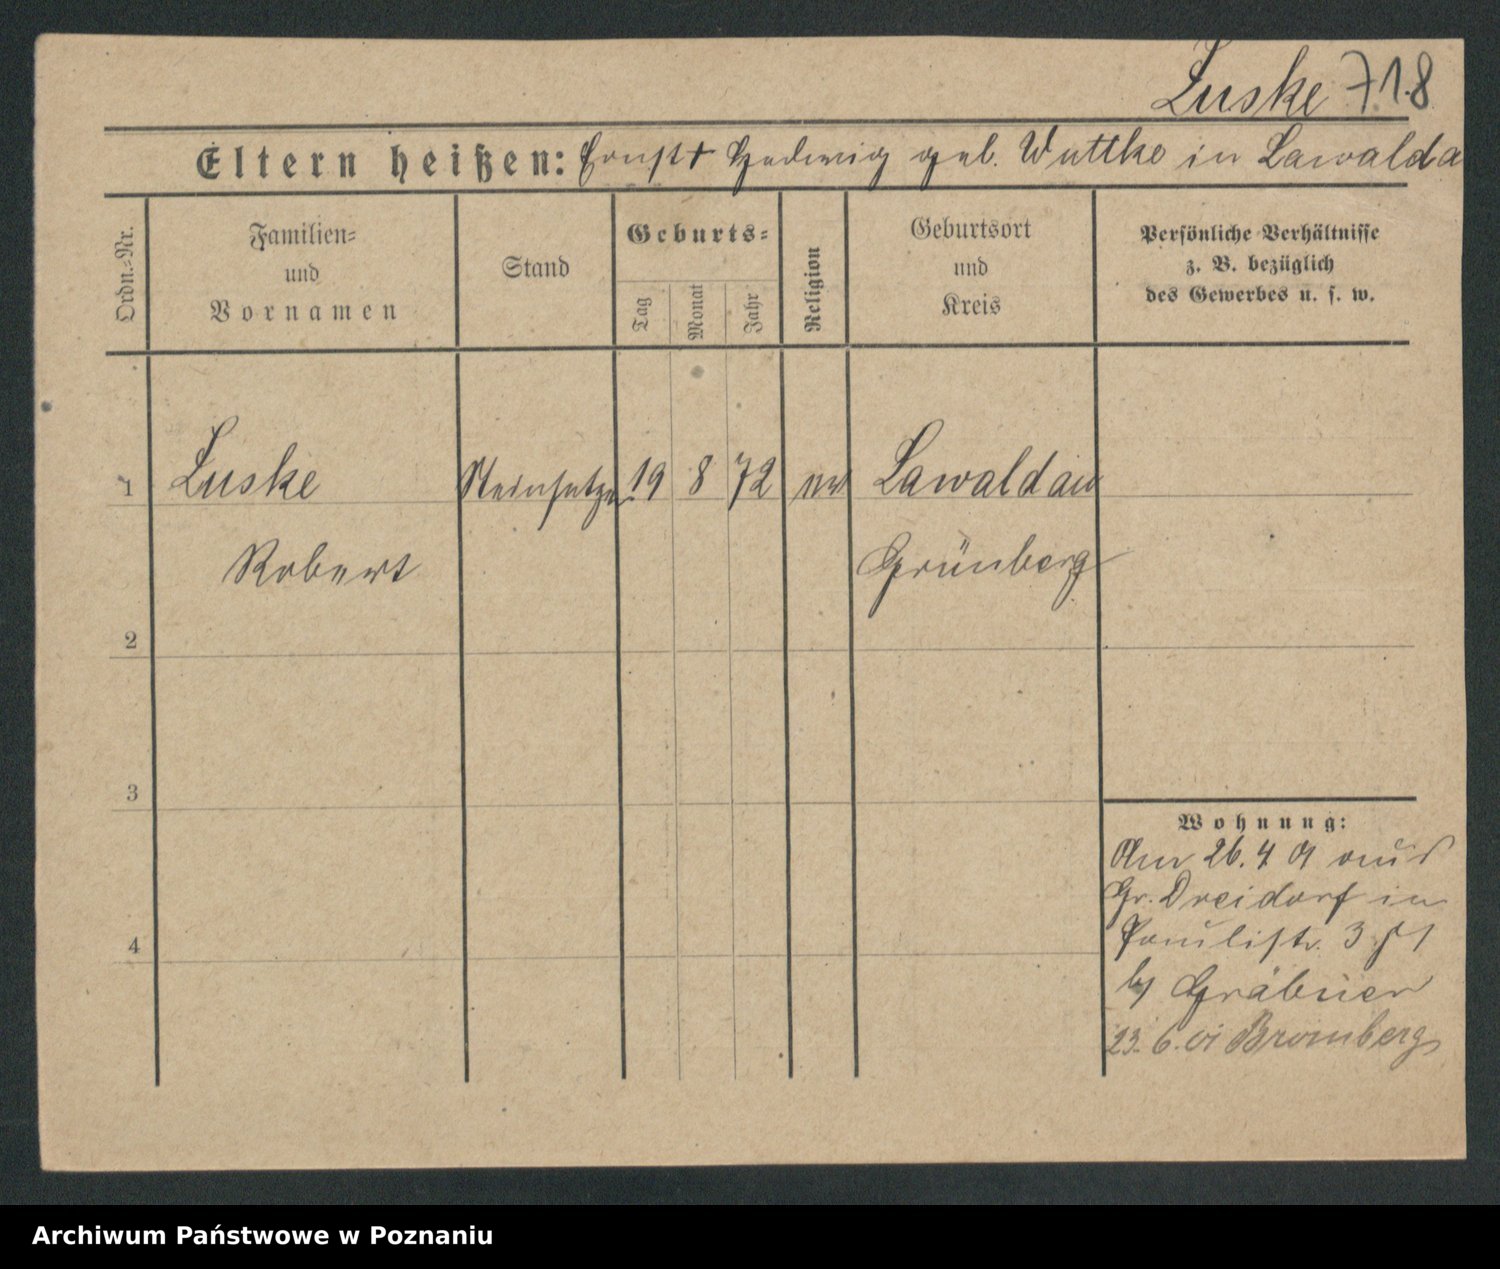 Luske 718
Eltern heißen: Ernst + Hedwig geb. Wuttke in Lawalda
Ordn.-Nr.
Familien-
und
Vornamen
Stand
Geburts-
Tag
Monat
Jahr
Religion
Geburtsort
und
Kreis
Persönliche Verhältnisse
z. B. bezüglich
des Gewerbes u. s. w.
1 Luske Steinsetzer 19 8 72 ev Lawaldau
Robert Grünberg
2
3
Wohnung:
Am 26.4 01 aus
Gr. Dreidorf in
Paulistr. 3
4
b/ Gräbner
23. 6. 01 Bromberg
Archiwum Państwowe w Poznaniu